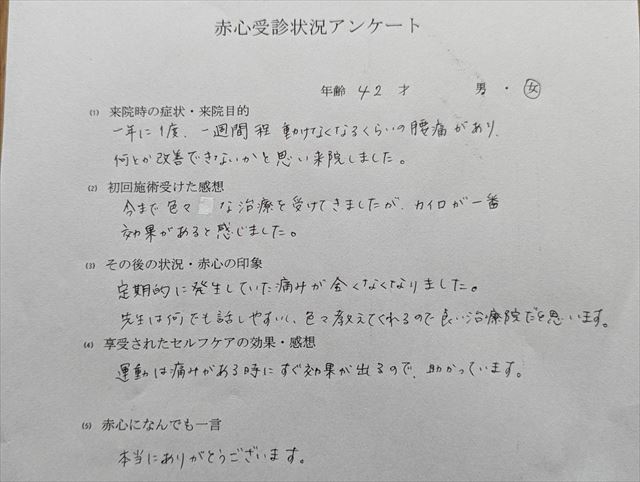 赤心受診状況アンケート
年齢 42 才 男・女
(1) 来院時の症状・来院目的
一年に1度、一週間程 動けなくなるくらいの腰痛があり、
何とか改善できないかと思い来院しました。
(2) 初回施術受けた感想
今まで色々な治療を受けてきましたが、カイロが一番
効果があると感じました。
(3) その後の状況・赤心の印象
定期的に発生していた痛みが全くなくなりました。
先生は何でも話しやすいし、色々教えてくれるので良い治療院だと思います。
(4) 享受されたセルフケアの効果・感想
運動は痛みがある時にすぐ効果が出るので、助かっています。
(5) 赤心になんでも一言
本当にありがとうございます。